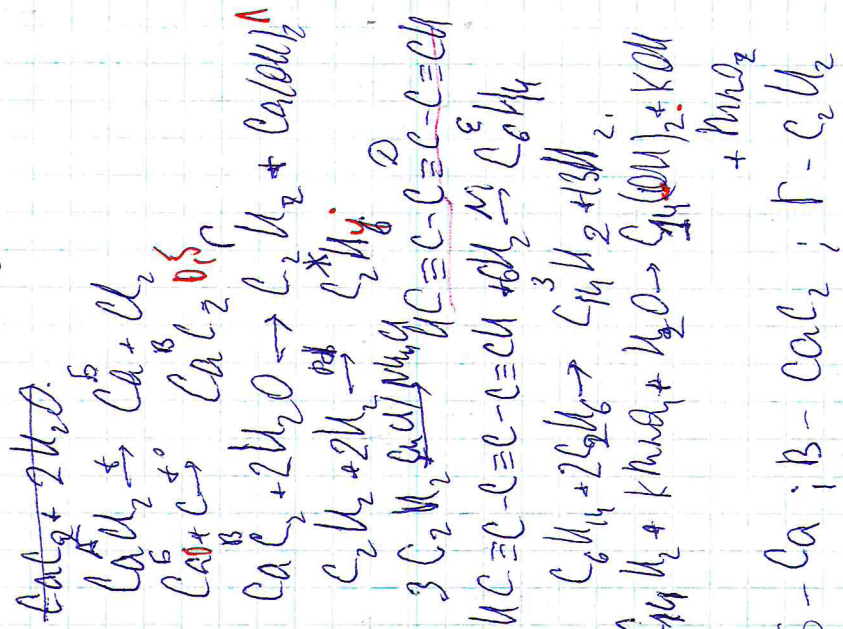 CaC₂ + 2H₂O.
CaCl₂ →t Ca + Cl₂
CaO + C →t° CaC₂
CaC₂ + 2H₂O → C₂H₂ + Ca(OH)₂
C₂H₂ + 2H₂ → C₂H₆
3C₂H₂ CuCl/NH₄Cl HC≡C-C≡C-C≡CH
HC≡C-C≡C-C≡CH + 6H₂ →Ni C₆H₁₄
C₆H₁₄ + 2C₂H₆ → C₁₄H₂ + 13H₂.
C₁₄H₂ + KMnO₄ + H₂O → C₁₄(OH)₂ + KOH
+ MnO₂
Б - Ca ; В - CaC₂ ; Г - C₂H₂